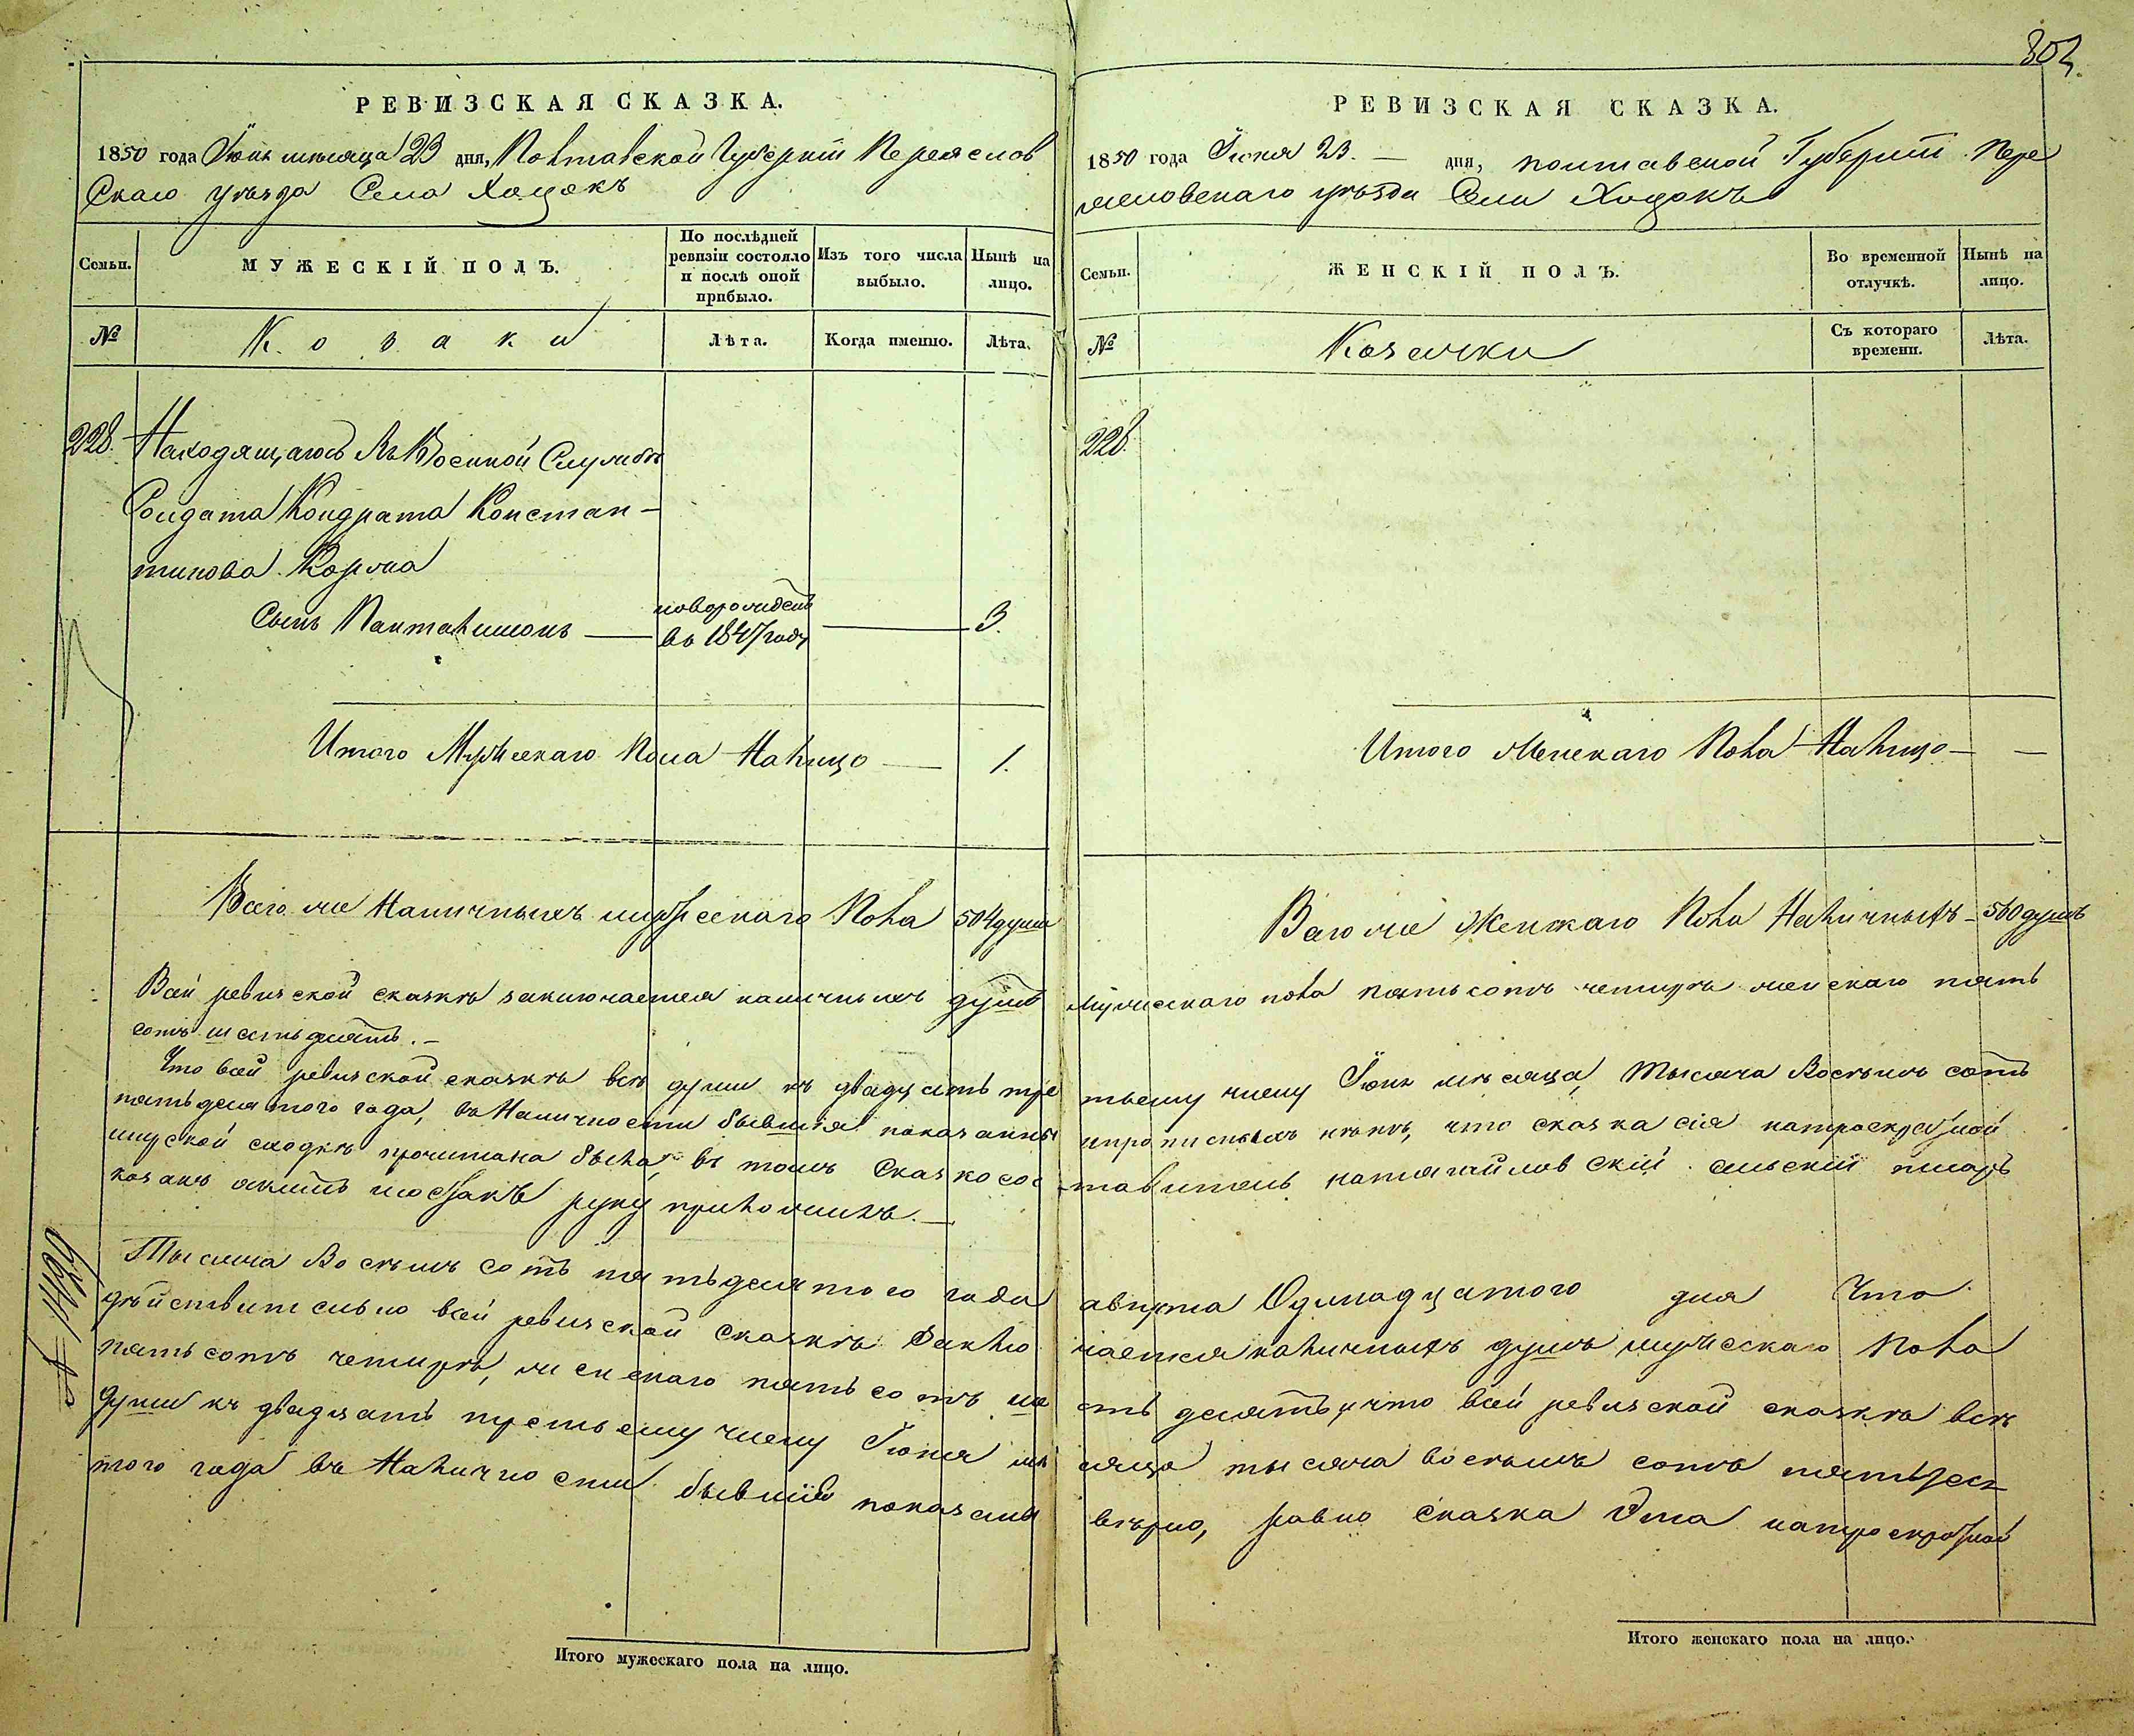 802.
РЕВИЗСКАЯ СКАЗКА.
1850 года Іюня месяца 23 дня, Полтавской Губерніи Переяслов
Скаго уезда Села Хоцокъ
Семьи.
МУЖЕСКІЙ ПОЛЪ.
По послѣдней ревизіи состояло и послѣ оной прибыло.
Изъ того числа выбыло.
Нынѣ на лицо.
№
Козаки
Лѣта.
Когда именно.
Лѣта.
228. Находящагось Въ Военной Службѣ
Солдата Кондрата Констан-
тинова Коржа
Сынъ Пантелимонъ — новорожденъ въ 1847 году — 3.
Итого Мужескаго Пола Налицо — 1.
Всего же Наличныхъ мужескаго Пола 504 души
РЕВИЗСКАЯ СКАЗКА.
1850 года Іюня 23. — дня, полтавской Губерніи Пере
яславскаго уѣзда Села Хоцокъ
Семьи.
ЖЕНСКІЙ ПОЛЪ.
Во временной отлучкѣ.
Нынѣ на лицо.
№
Козачки
Съ котораго времени.
Лѣта.
228.
Итого Женскаго Пола Налицо — —
Всего же Женскаго Пола Наличныхъ — 560 душъ
Всей ревизской сказкѣ заключается наличныхъ душъ мужескаго пола пятьсотъ четырѣ женскаго пять
сотъ шестьдесятъ. —
Что всей ревизской сказкѣ всѣ души къ двадцать тре тьему числу Іюня мѣсяца Тысяча Восемъ сотъ
пятьдесятого года, въ Наличности бывшія показанны и прописныхъ нѣтъ, что сказка сія
мирской сходкѣ прочитана была, въ томъ Сказкосос тавитель сельскій писарь
козакъ руку приложилъ. —
Тысяча Восемъ сотъ пятьдесятого года августа Одинадцатого дня Что
дѣйствительно всей ревизской сказкѣ Заклю чается наличныхъ душъ мужескаго Пола
пятьсотъ четырѣ, женскаго пятьсотъ ше стьдесятъ, что всей ревизской сказкѣ всѣ
души къ двадцать третьему числу Іюня мѣ сяца тысяча восемъ сотъ пятьдеся
того года въ Наличности бывшія показаны вѣрно, равно Сказка Эта
Итого мужескаго пола на лицо.
Итого женскаго пола на лицо.